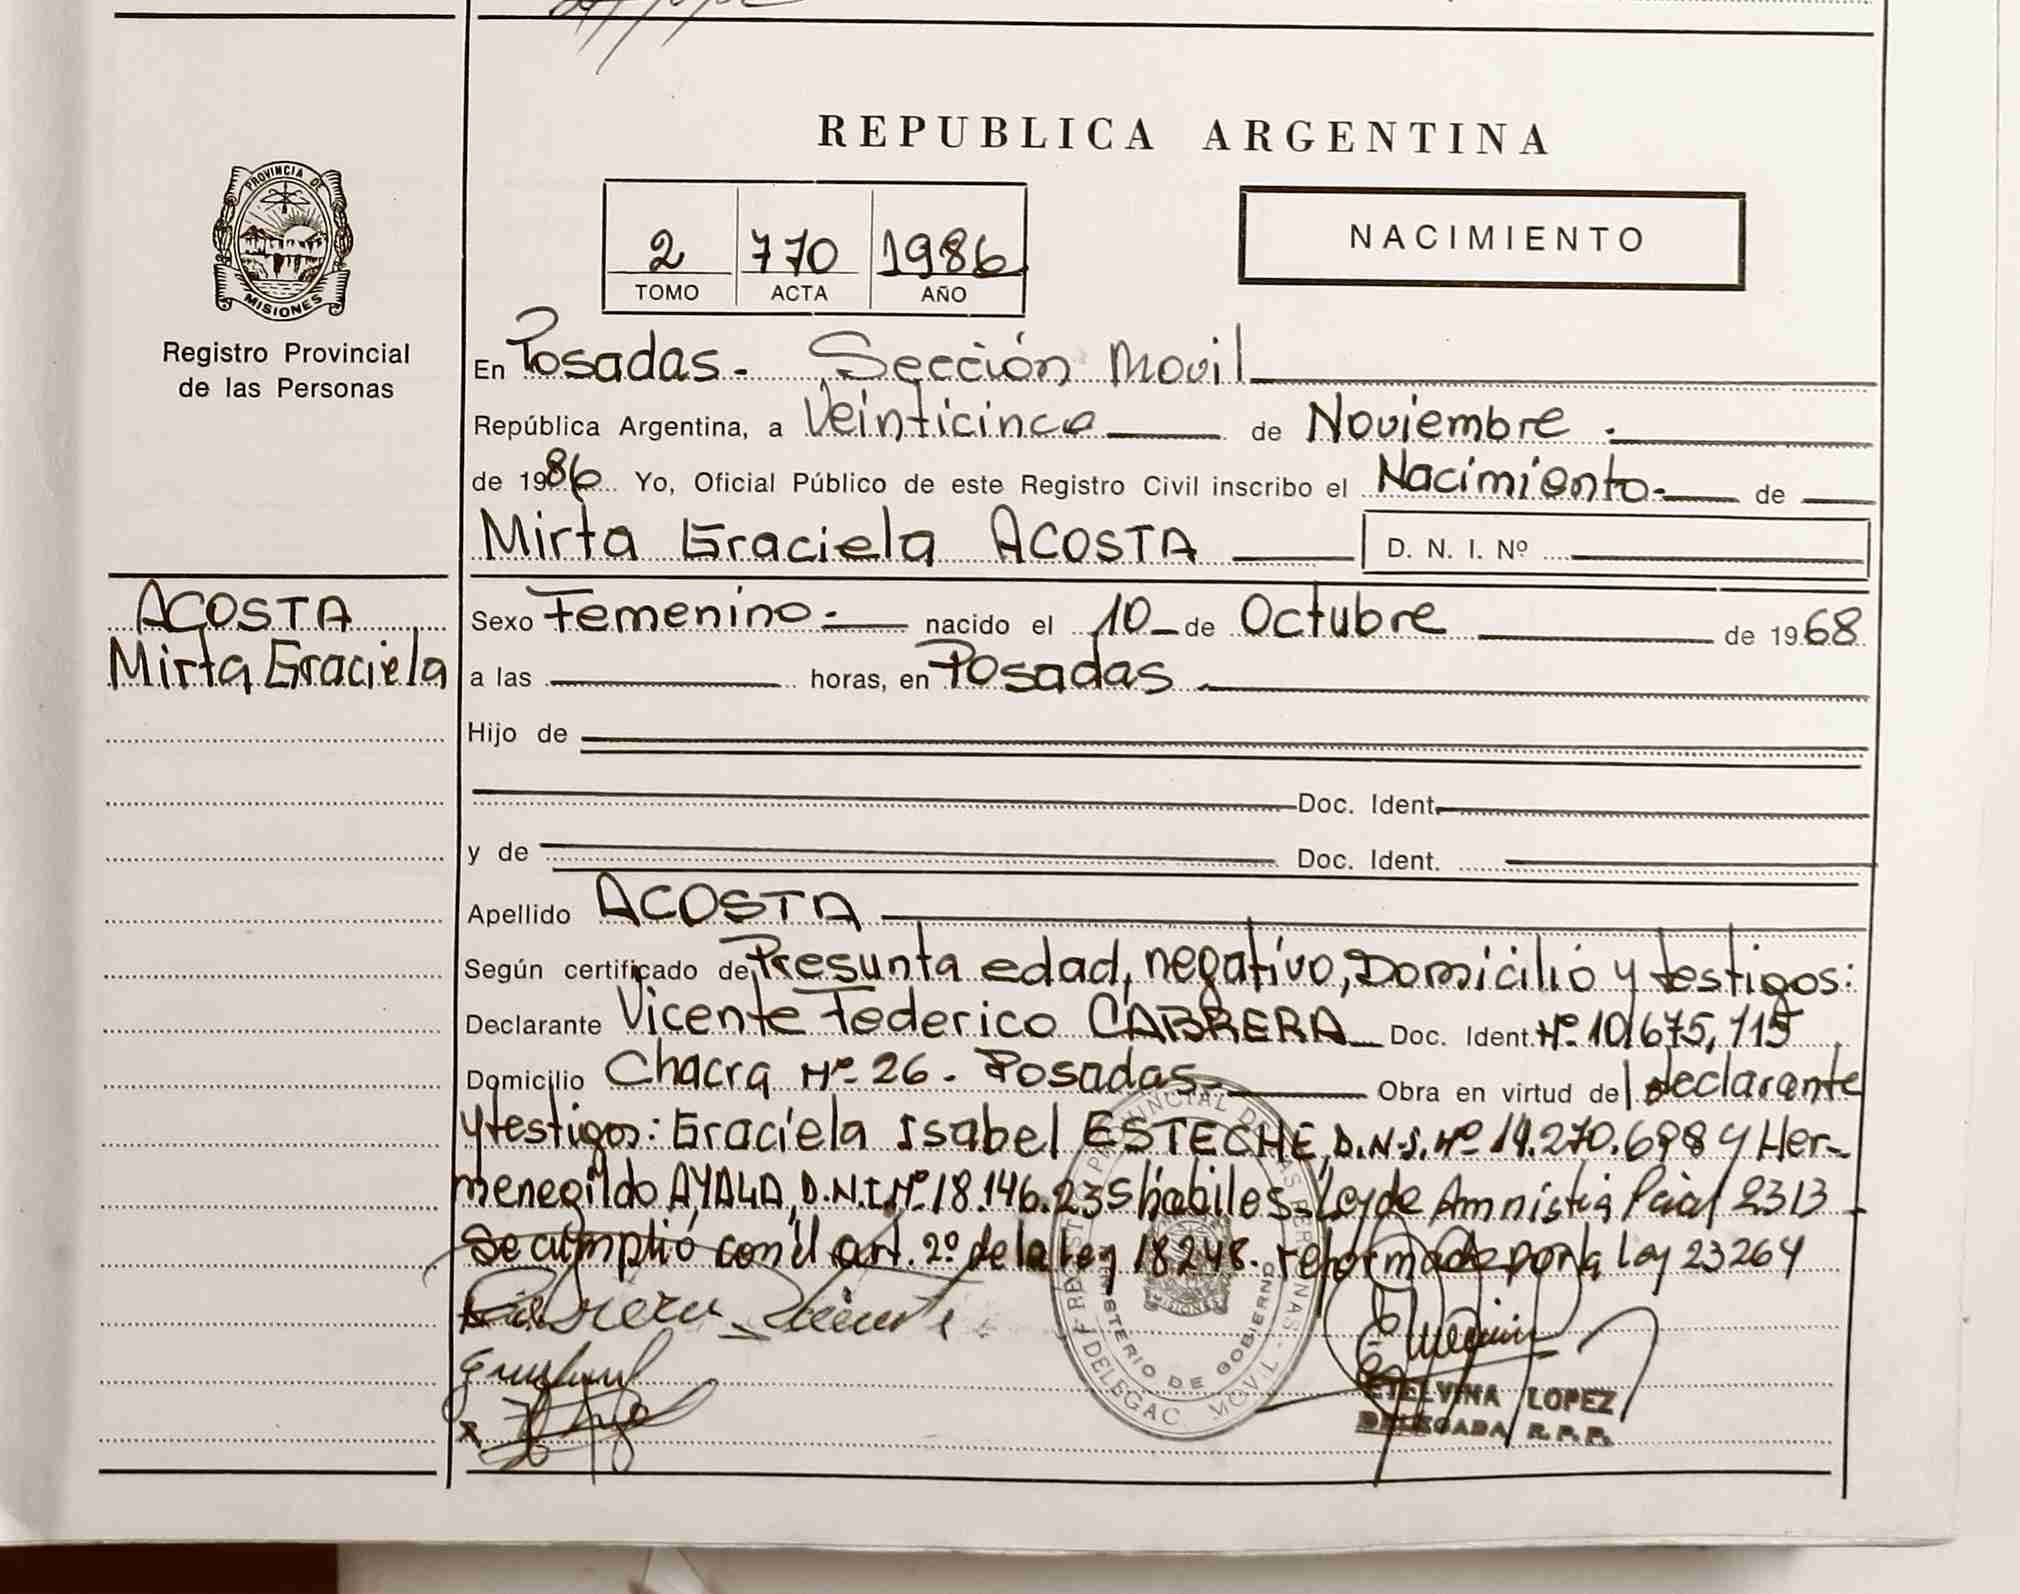 REPUBLICA ARGENTINA
PROVINCIA DE
MISIONES
Registro Provincial
de las Personas
2 770 1986
TOMO ACTA AÑO
NACIMIENTO
En Posadas - Sección Movil
República Argentina, a Veinticinco de Noviembre.
de 1986 Yo, Oficial Público de este Registro Civil inscribo el Nacimiento- de
Mirta Graciela ACOSTA D. N. I. Nº
ACOSTA
Mirta Graciela
Sexo Femenino - nacido el 10 de Octubre de 1968
a las horas, en Posadas
Hijo de
Doc. Ident.
y de Doc. Ident.
Apellido ACOSTA
Según certificado de Presunta edad, negativo, Domicilio y testigos:
Declarante Vicente Federico CABRERA Doc. Ident. Nº 10.675,715
Domicilio Chacra Nº 26 - Posadas - Obra en virtud del declarante
y testigos: Graciela Isabel ESTECHE, D.N.I. Nº 14.270.698 y Her-
menegildo AYALA, D.N.I. Nº 18.146.235 hábiles - Ley de Amnistía Pcial 2313 -
Se cumplió con el art. 2º de la Ley 18248. reformada por la Ley 23264
REGISTRO PROVINCIAL DE LAS PERSONAS
MINISTERIO DE GOBIERNO
MISIONES
DELEGAC. MOVIL
ETELVINA LOPEZ
DELEGADA R.P.P.